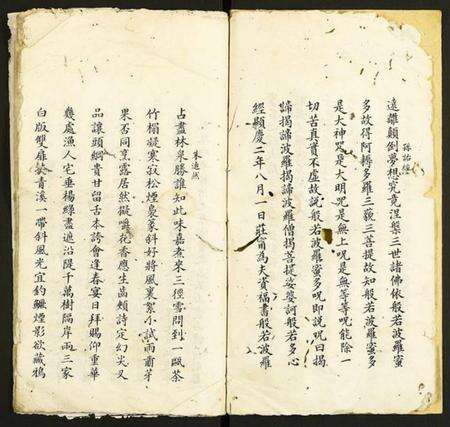 孫祐禮
遠離顛倒夢想究竟涅槃三世諸佛依般若波羅蜜
多故得阿耨多羅三藐三菩提故知般若波羅蜜多
是大神咒是大明咒是無上咒是無等等咒能除一
切苦真實不虛故說般若波羅蜜多咒即說咒曰揭
諦揭諦波羅揭諦波羅僧揭菩提娑婆訶般若多心
經顯慶二年八月一日莊甯為夫資福書般若波羅
朱逌然
占盡林泉勝誰知此味嘉煮來三徑雪問到一甌茶
竹榻凝寒寂松煙裊篆斜好將風裏絮小試雨前芽
果否同烹露居然儗嚼花香應生齒頰詩定幻尖叉
品讓頭綱貴甘留舌本誇會逢春宴日拜賜仰重華
幾處漁人宅垂楊綠盡遮沿隄千萬樹隔岸兩三家
白版雙扉 青溪一帶斜風光宜釣 煙影欲藏鴉